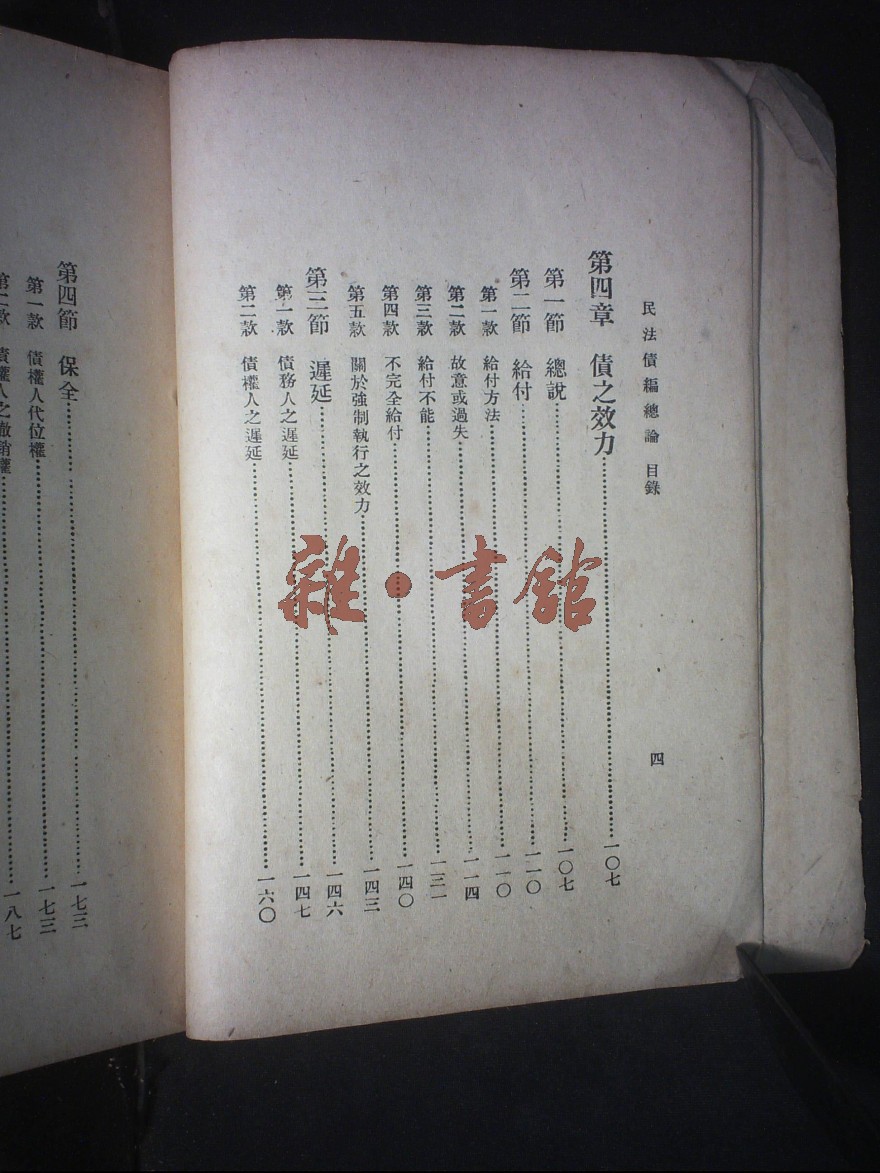 民法債編總論 目錄 四
第四章 債之效力……一〇七
第一節 總說……一〇七
第二節 給付……一一〇
第一款 給付方法……一一〇
第二款 故意或過失……一一四
第三款 給付不能……一三一
第四款 不完全給付……一四〇
第五款 關於強制執行之效力……一四三
第三節 遲延……一四六
第一款 債務人之遲延……一四七
第二款 債權人之遲延……一六〇
第四節 保全……一七三
第一款 債權人代位權……一七三
第二款 債權人之撤銷權……一八七
雜·書館